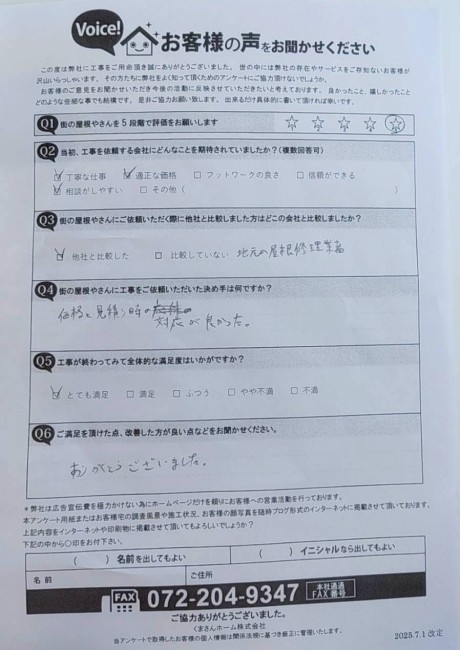 Voice!
お客様の声をお聞かせください
この度は弊社に工事をご用命頂き誠にありがとうございました。世の中には弊社の存在やサービスをご存知ないお客様が
沢山いらっしゃいます。その方たちに弊社をよく知って頂くためのアンケートにご協力頂けないでしょうか。
お客様のご意見をお聞かせいただき今後の活動に反映させていただきたいと考えております。良かったこと、嬉しかったこと
どのような些細な事でも結構です。是非ご協力お願い致します。出来るだけ具体的に書いて頂ければ幸いです。
Q1 街の屋根やさんを5段階で評価をお願いします ☆ ☆ ☆ ☆ ☆
Q2 当初、工事を依頼する会社にどんなことを期待されていましたか？(複数回答可)
☑ 丁寧な仕事 ☑ 適正な価格 □ フットワークの良さ □ 信頼ができる
☑ 相談がしやすい □ その他( )
Q3 街の屋根やさんにご依頼いただく際に他社と比較しました方はどこの会社と比較しましたか？
☑ 他社と比較した □ 比較していない 地元の屋根修理業者
Q4 街の屋根やさんに工事をご依頼いただいた決め手は何ですか？
価格と見積り時の
対応が良かった。
Q5 工事が終わってみて全体的な満足度はいかがですか？
☑ とても満足 □ 満足 □ ふつう □ やや不満 □ 不満
Q6 ご満足を頂けた点、改善した方が良い点などをお聞かせください。
ありがとうございました。
＊弊社は広告宣伝費を極力かけない為にホームページだけを頼りにお客様への営業活動を行っております。
本アンケート用紙またはお客様宅の調査風景や施工状況、お客様の顔写真を随時ブログ形式のインターネットに掲載させて頂いております。
上記内容をインターネットや印刷物に掲載させて頂いてもよろしいでしょうか？
下記の中から〇印をお付下さい。
( ) 名前を出してもよい ( ) イニシャルなら出してもよい
名前 ご住所
FAX 072-204-9347 本社通過 FAX番号
ご協力ありがとうございました。
くまさんホーム株式会社
当アンケートで取得したお客様の個人情報は関係法規に基づき厳正に管理いたします。
2025.7.1改定